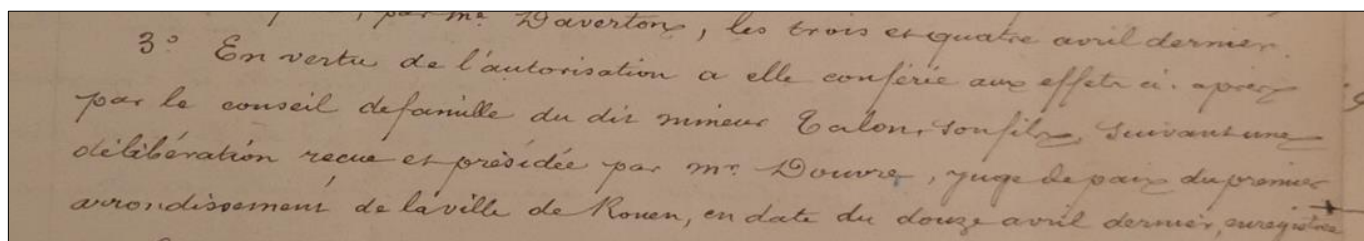 par me Daverton, les trois et quatre avril dernier.
3° En vertu de l'autorisation a elle conférée aux effets ci-après
par le conseil de famille du dit mineur Talon, son fils, suivant une
délibération recue et présidée par mr. Douvre, juge de paix du premier
arrondissement de la ville de Rouen, en date du douze avril dernier, enregistrée